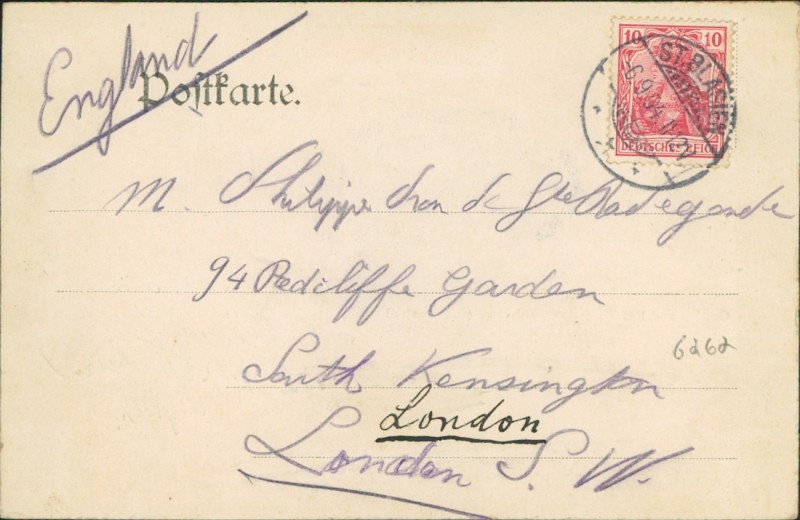 England
Postkarte.
10 10
ST. BLASIEN
6.9.04.
DEUTSCHES REICH
M. Philippe de Ste Radegonde
94 Redcliffe Garden
South Kensington
6262
London
London S. W.